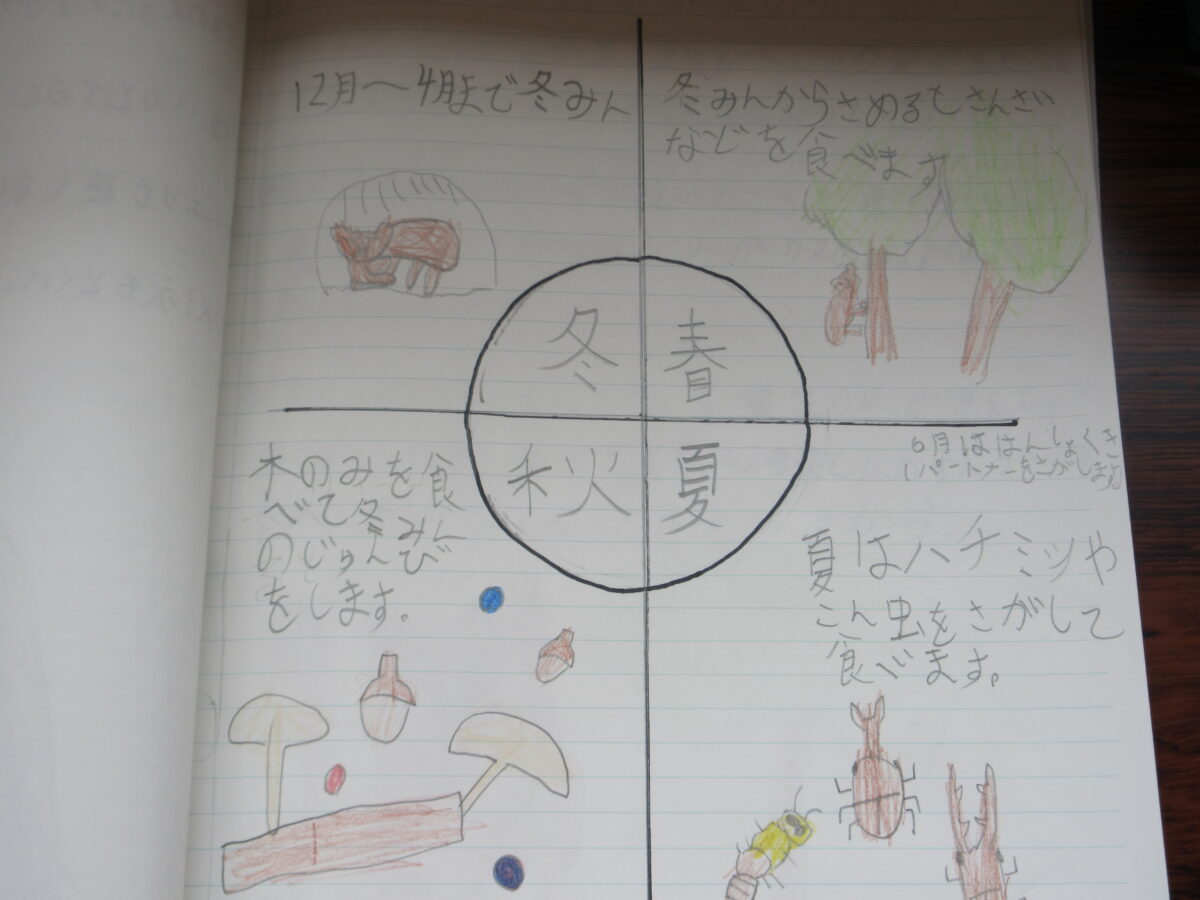 12月〜4月まで冬みん
冬みんからさめるとさんさい
などを食べます
冬
春
秋
夏
6月ははんしょくき
パートナーをさがします。
木のみを食
べて冬みん
のじゅんび
をします。
夏はハチミツや
こん虫をさがして
食べます。